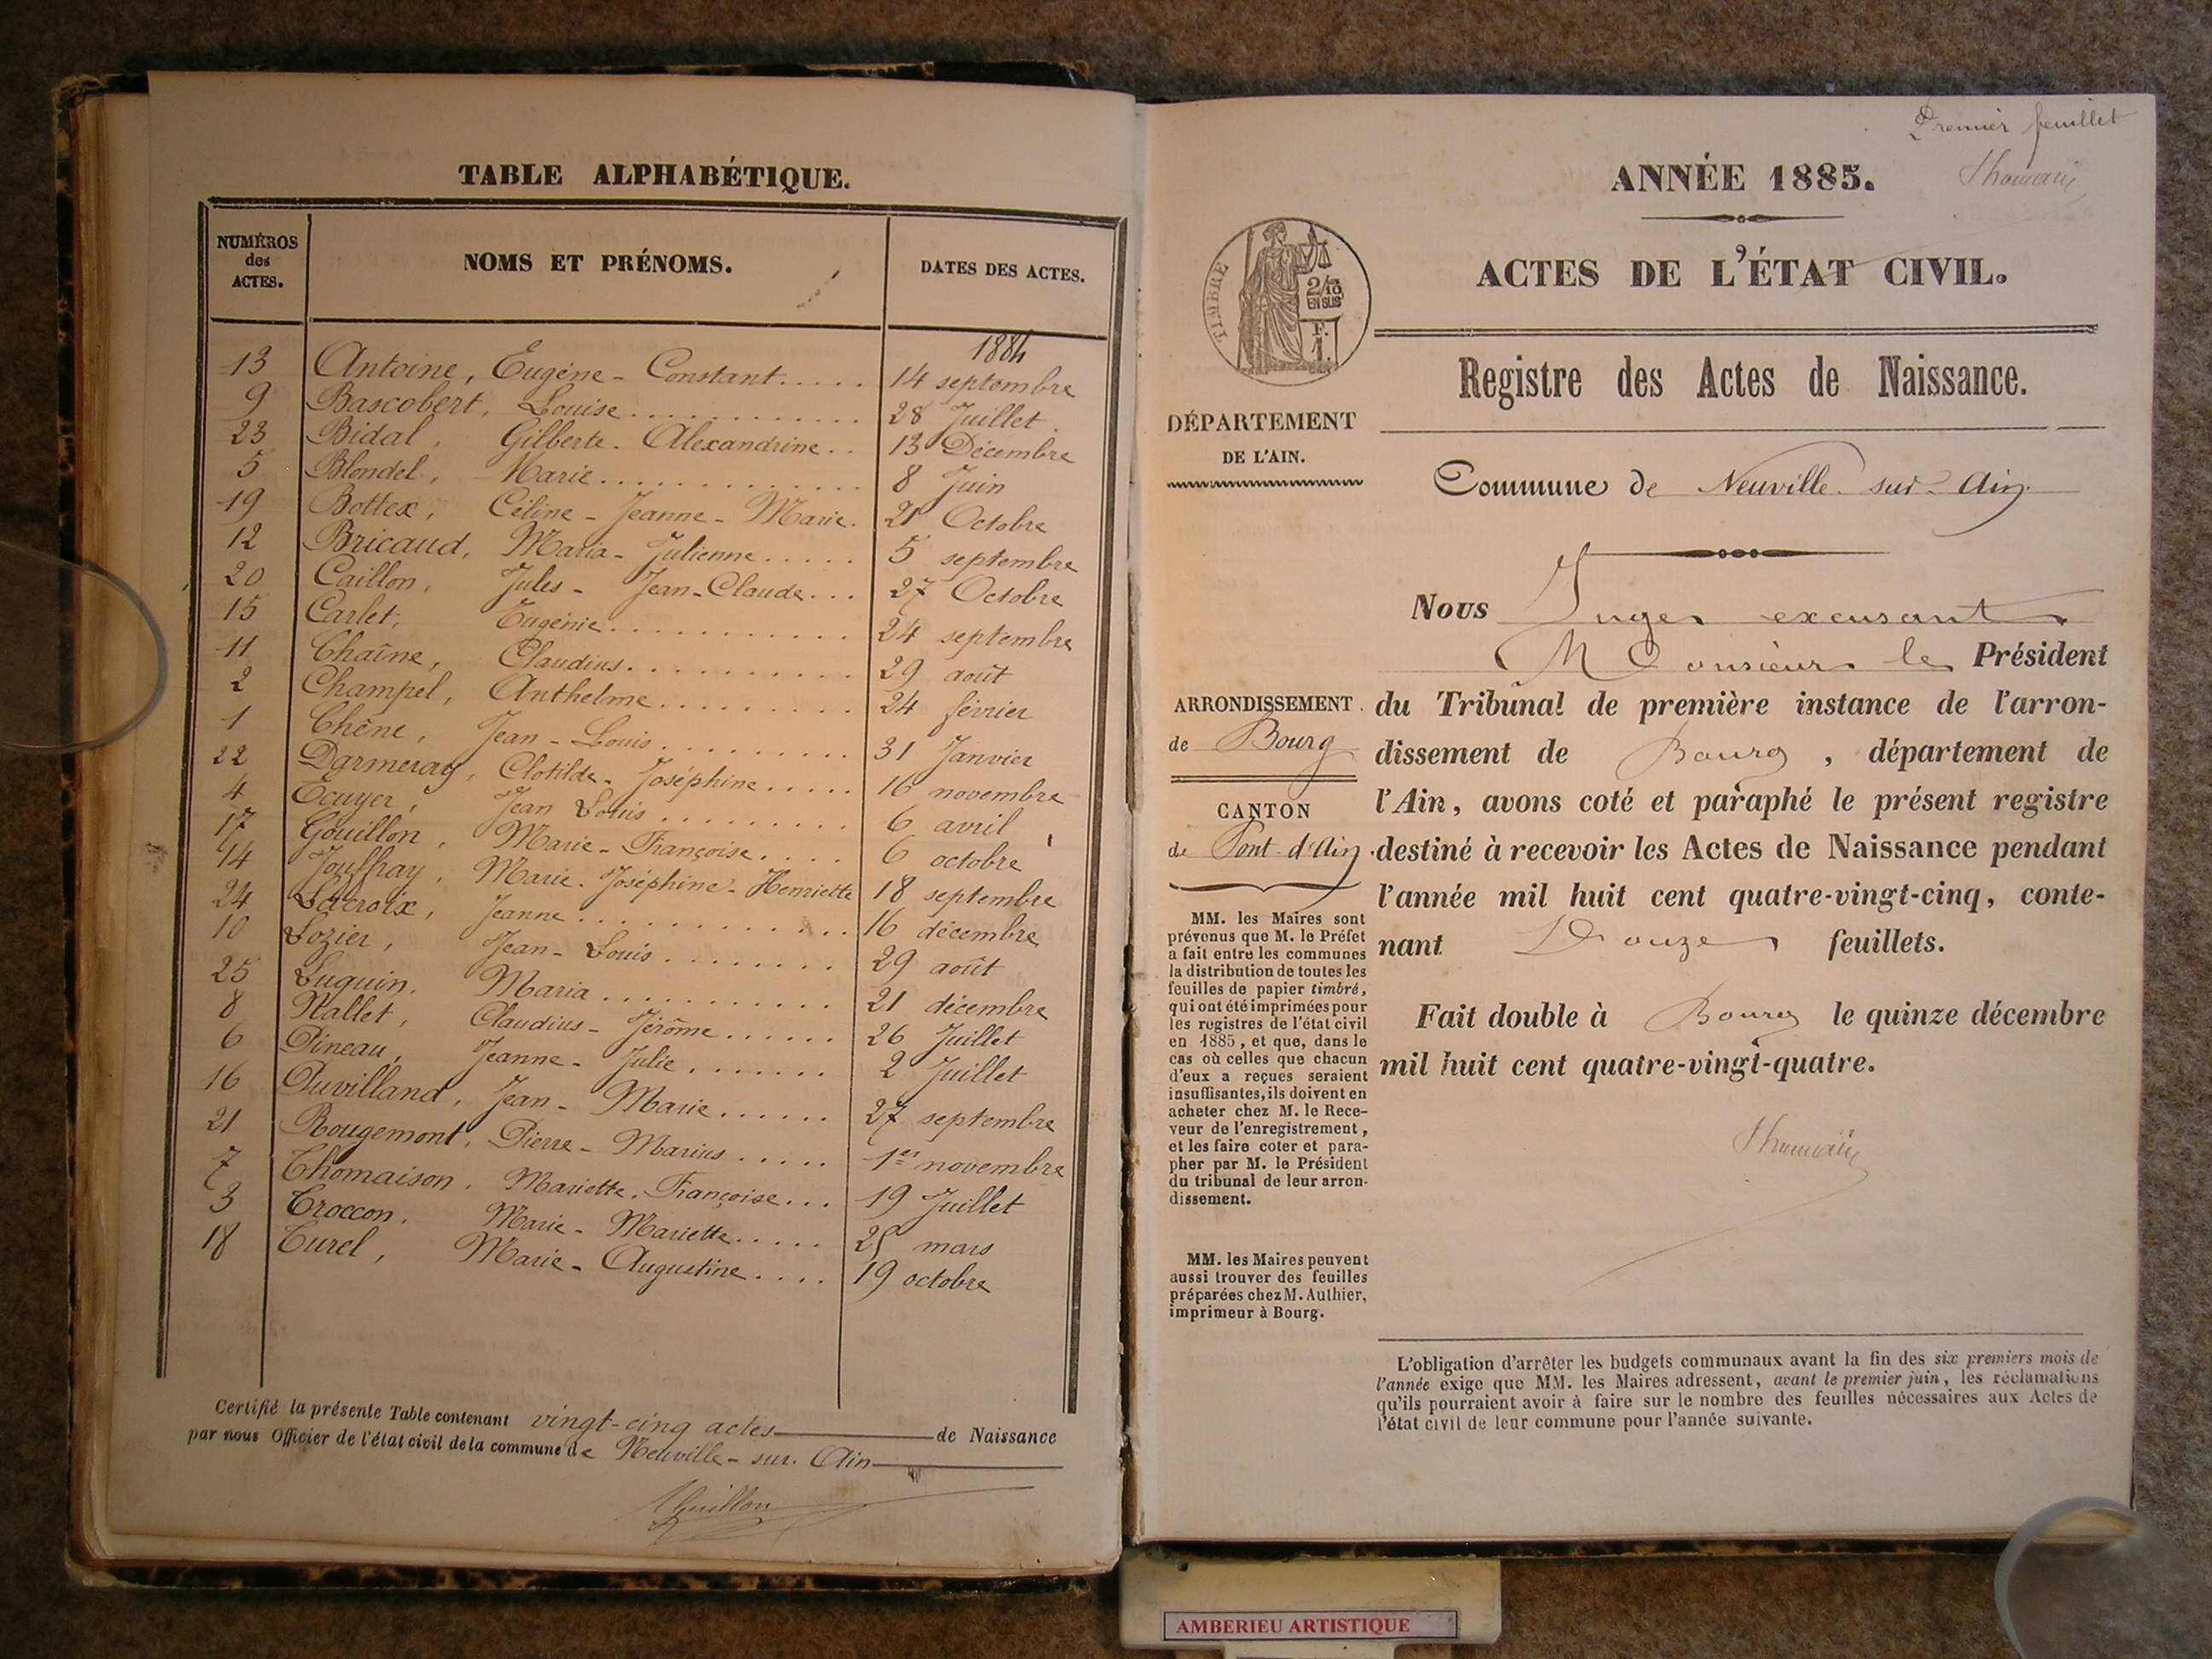 TABLE ALPHABÉTIQUE.
NUMÉROS des ACTES. NOMS ET PRÉNOMS. DATES DES ACTES.
1884
13 Antoine, Eugène - Constant..... 14 septembre
9 Bascobert, Louise........... 28 Juillet.
23 Bidal, Gilberte - Alexandrine.. 13 Décembre
5 Blondel, Marie............. 8 Juin
19 Bottex, Céline - Jeanne - Marie. 21 Octobre
12 Bricaud, Maria - Julienne..... 5 septembre
20 Caillon, Jules - Jean-Claude... 27 Octobre
15 Carlet, Eugénie........... 24 septembre
11 Chaîne, Claudius........... 29 août
2 Champel, Anthelme......... 24 février
1 Chêne, Jean - Louis......... 31 Janvier
22 Darmeray, Clotilde - Joséphine..... 16 novembre
4 Ecuyer, Jean Louis......... 6 avril
17 Gouillon, Marie - Françoise.... 6 octobre
14 Jouffray, Marie - Joséphine - Henriette 18 septembre
24 Lacroix, Jeanne............ 16 décembre
10 Lozier, Jean - Louis........ 29 août
25 Luquin, Maria........... 21 décembre
8 Mallet, Claudius - Jérôme...... 26 Juillet
6 Pineau, Jeanne - Julie....... 2 Juillet
16 Puvilland, Jean - Marie...... 27 septembre
21 Rougemont, Pierre - Marius..... 1er novembre
7 Thomaison, Mariette - Françoise... 19 Juillet
3 Troccon, Marie - Mariette..... mars
18 Turel, Marie - Augustine.... 19 octobre
Certifié la présente Table contenant vingt-cinq actes de Naissance
par nous Officier de l'état civil de la commune de Neuville - sur - Ain
Premier feuillet
ANNÉE 1885.
ACTES DE L'ÉTAT CIVIL.
TIMBRE
2/10 EN SUS
F. 1.
Registre des Actes de Naissance.
DÉPARTEMENT
DE L'AIN.
Commune de Neuville - sur - Ain
Nous Juge excusant
Monsieur le Président
ARRONDISSEMENT
de Bourg
CANTON
de Pont-d'Ain
du Tribunal de première instance de l'arron-
dissement de Bourg, département de
l'Ain, avons coté et paraphé le présent registre
destiné à recevoir les Actes de Naissance pendant
l'année mil huit cent quatre-vingt-cinq, conte-
nant Douze feuillets.
Fait double à Bourg le quinze décembre
mil huit cent quatre-vingt-quatre.
MM. les Maires sont
prévenus que M. le Préfet
a fait entre les communes
la distribution de toutes les
feuilles de papier timbré,
qui ont été imprimées pour
les registres de l'état civil
en 1885, et que, dans le
cas où celles que chacun
d'eux a reçues seraient
insuffisantes, ils doivent en
acheter chez M. le Rece-
veur de l'enregistrement,
et les faire coter et para-
pher par M. le Président
du tribunal de leur arron-
dissement.
MM. les Maires peuvent
aussi trouver des feuilles
préparées chez M. Authier,
imprimeur à Bourg.
L'obligation d'arrêter les budgets communaux avant la fin des six premiers mois de
l'année exige que MM. les Maires adressent, avant le premier juin, les réclamations
qu'ils pourraient avoir à faire sur le nombre des feuilles nécessaires aux Actes de
l'état civil de leur commune pour l'année suivante.
AMBERIEU ARTISTIQUE